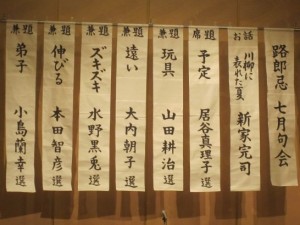 路郎忌 七月句会
お話
川柳に
表れた夏
新家完司
席題
予定
居谷真理子 選
兼題
玩具
山田耕治 選
兼題
遠い
大内朝子 選
兼題
ズキズキ
水野黒兎 選
兼題
伸びる
本田智彦 選
兼題
弟子
小島蘭幸 選